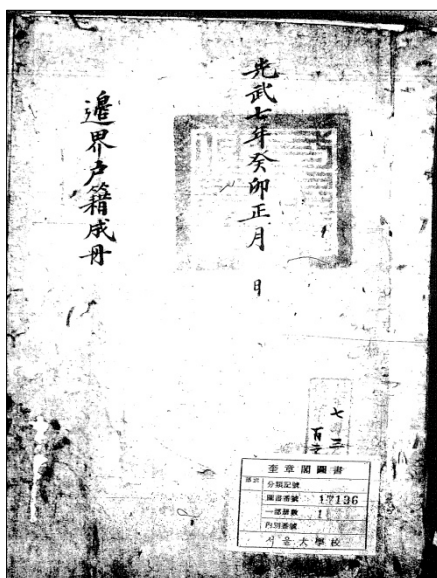 光武七年癸卯正月 日
邊界戶籍成冊
七三
奎章閣圖書
分類記號
圖書番號 17136
一部冊數 1
內別番號
서울大學校